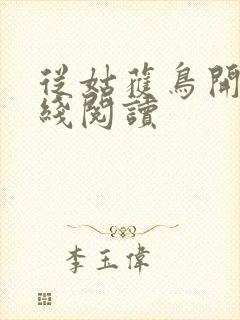 從姑獲鳥開
綫閱讀
李玉偉